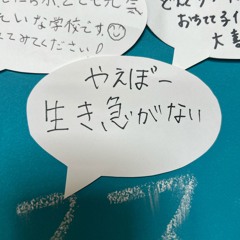 いな学校です。☺
てみてください!
おちて子
大喜
やえぼー
生き急がない